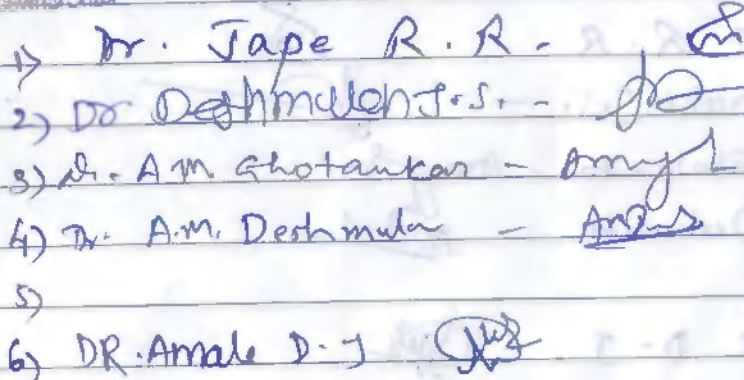 1) Dr. Jape R. R. -
2) Dr Deshmukh J. S. -
3) Dr. A. M. Ghotankar -
4) Dr. A. M. Deshmukh -
5)
6) DR. Amale D. J